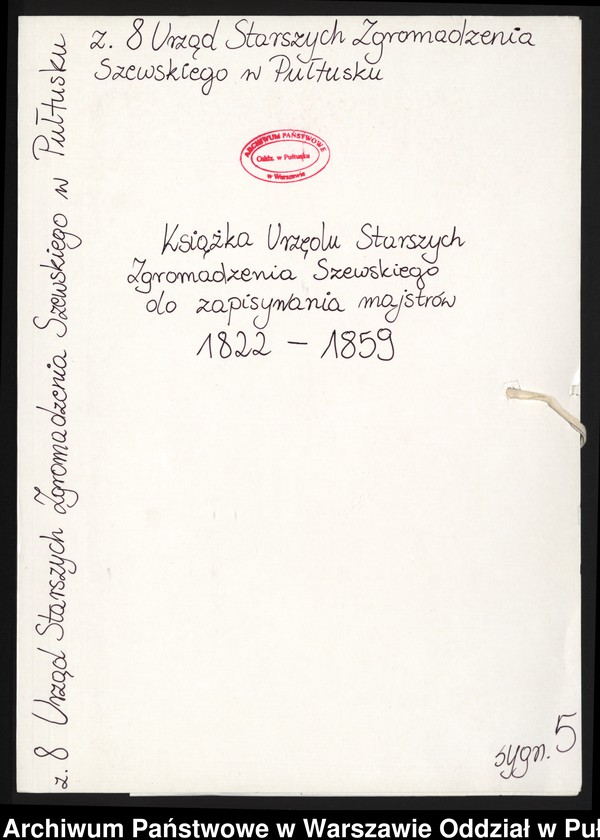 z. 8 Urząd Starszych Zgromadzenia
Szewskiego w Pułtusku
ARCHIWUM PAŃSTWOWE
Oddz. w Pułtusku
w Warszawie
Książka Urzędu Starszych
Zgromadzenia Szewskiego
do zapisywania majstrów
1822 – 1859
z. 8 Urząd Starszych Zgromadzenia Szewskiego w Pułtusku
sygn. 5
Archiwum Państwowe w Warszawie Oddział w Puł